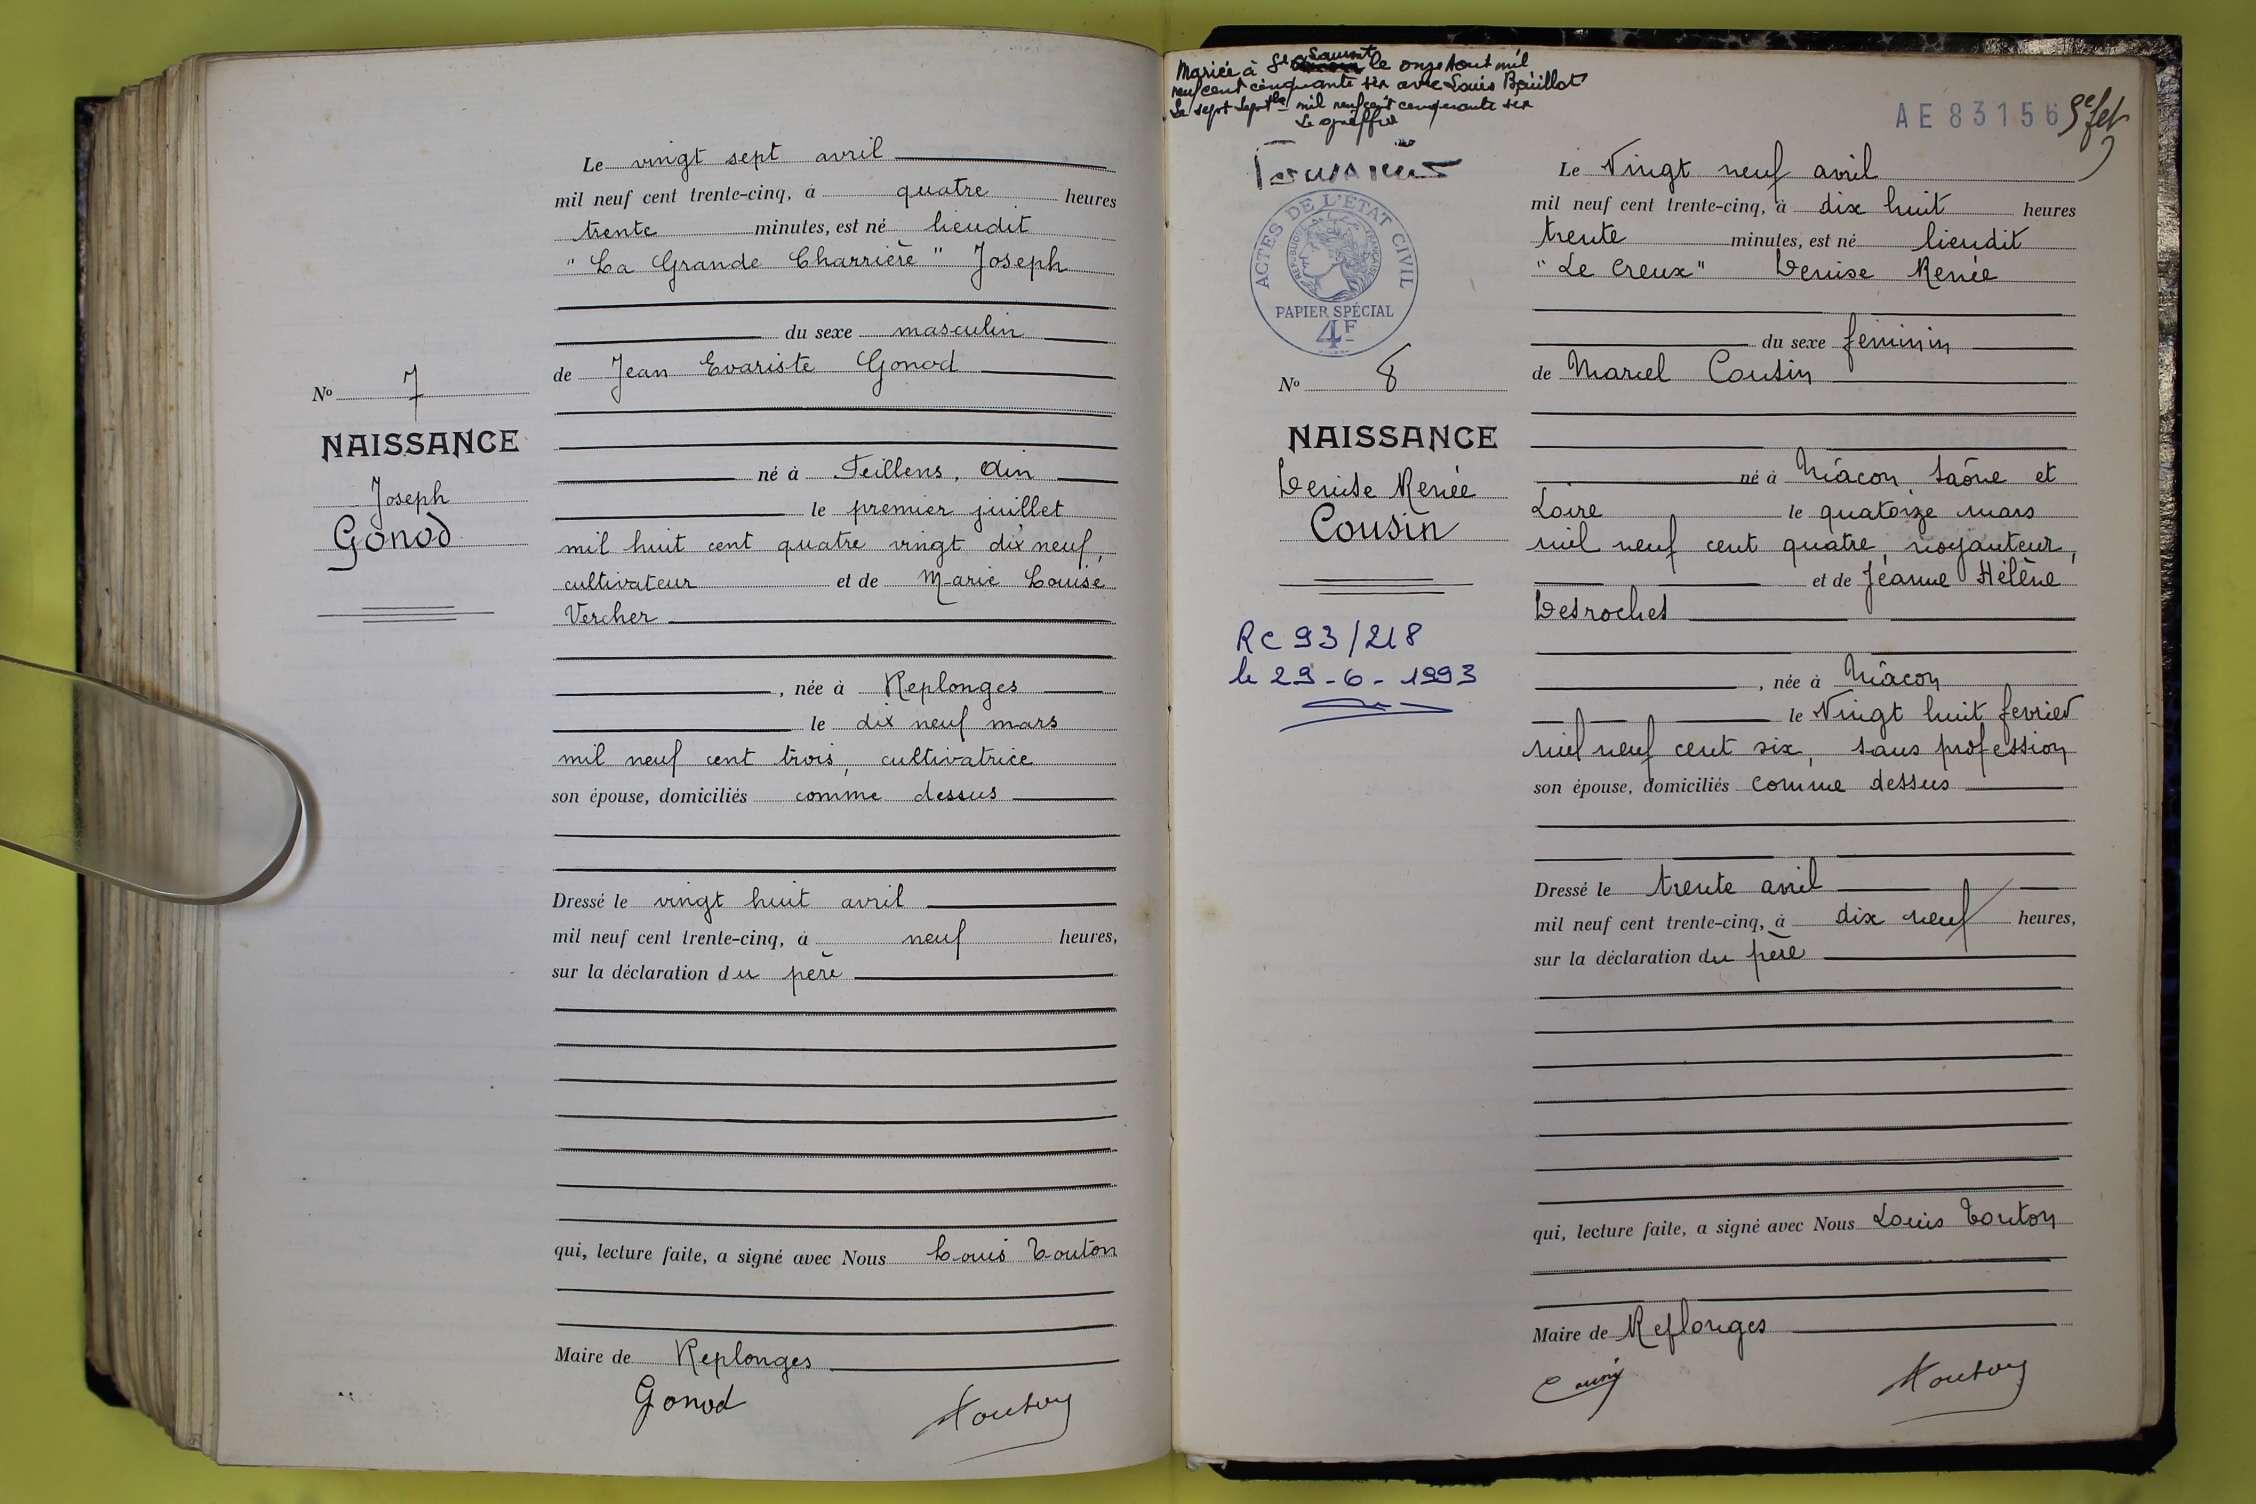 Le vingt sept avril
mil neuf cent trente-cinq, à quatre heures
trente minutes, est né lieudit
"La Grande Charrière" Joseph
du sexe masculin
de Jean Evariste Gonod
né à Feillens, Ain
le premier juillet
mil huit cent quatre vingt dix neuf,
cultivateur et de Marie Louise
Vercher
, née à Replonges
le dix neuf mars
mil neuf cent trois, cultivatrice
son épouse, domiciliés comme dessus
Dressé le vingt huit avril
mil neuf cent trente-cinq, à neuf heures,
sur la déclaration du père
qui, lecture faite, a signé avec Nous Louis Touton
Maire de Replonges
Gonod Touton
No 7
NAISSANCE
Joseph
Gonod
Mariée à St Laurent le onze Aout mil
neuf cent cinquante six avec Louis
Le sept Septbre mil neuf cent cinquante six
Le greffier
AE 83156 5e fet
ACTES DE L'ÉTAT CIVIL
RÉPUBLIQUE FRANÇAISE
PAPIER SPÉCIAL
4F
No 8
NAISSANCE
Denise Renée
Cousin
RC 93/218
le 29-6-1993
Le Vingt neuf avril
mil neuf cent trente-cinq, à dix huit heures
trente minutes, est né lieudit
"Le Creux" Denise Renée
du sexe féminin
de Marcel Cousin
né à Mâcon, Saône et
Loire le quatorze mars
mil neuf cent quatre, noyauteur,
et de Jeanne Hélène
Desroches
, née à Mâcon
le Vingt huit fevrier
mil neuf cent six, sans profession
son épouse, domiciliés comme dessus
Dressé le trente avril
mil neuf cent trente-cinq, à dix neuf heures,
sur la déclaration du père
qui, lecture faite, a signé avec Nous Louis Touton
Maire de Replonges
Cousin Touton